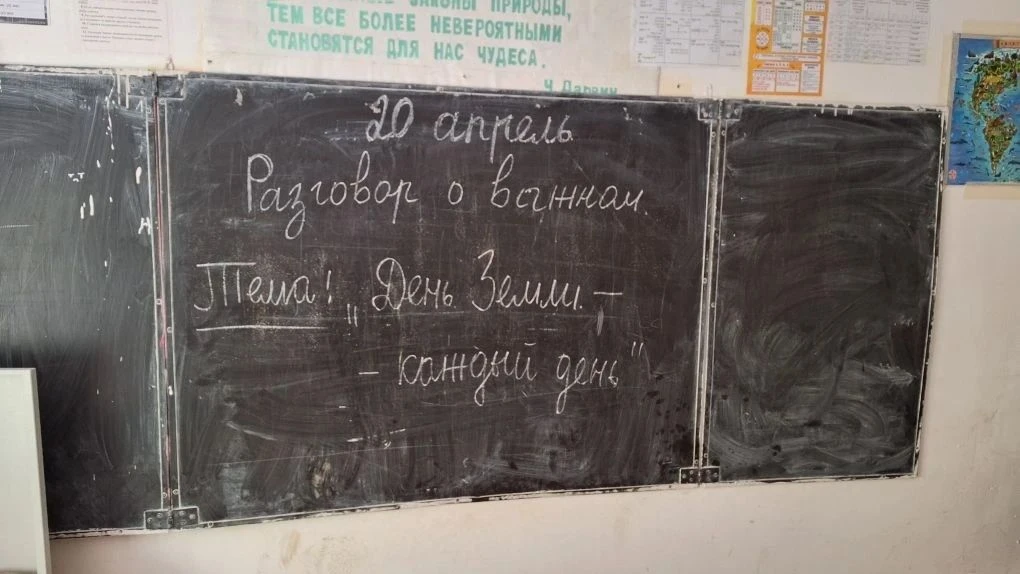 ЗАКОНЫ ПРИРОДЫ,
ТЕМ ВСЕ БОЛЕЕ НЕВЕРОЯТНЫМИ
СТАНОВЯТСЯ ДЛЯ НАС ЧУДЕСА.
Ч. Дарвин
20 апрель
Разговор о важном.
Тема! „День Земли –
– каждый день"